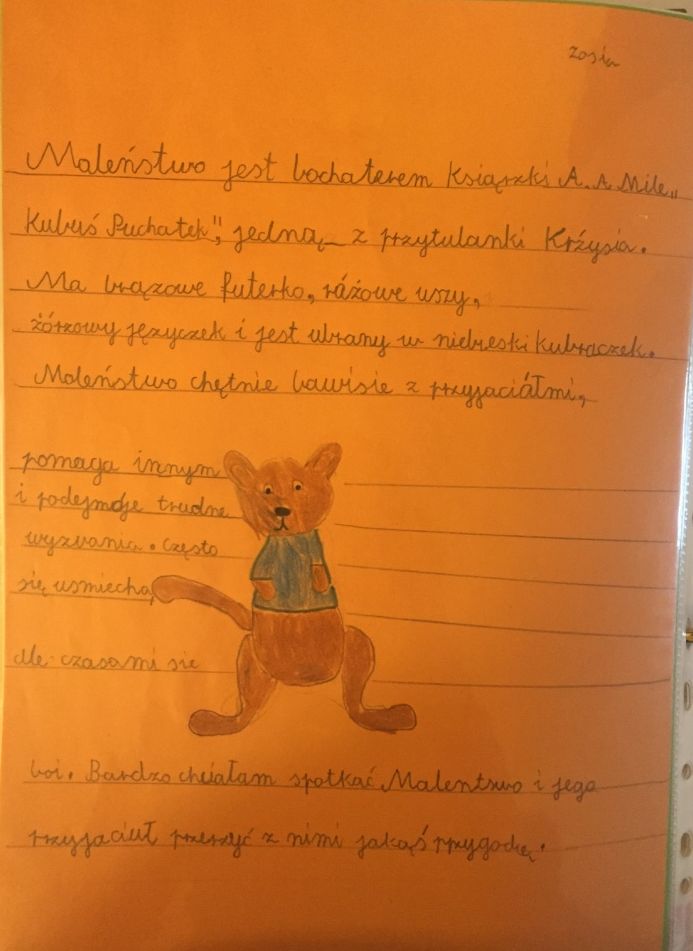 Zosia
Maleństwo jest bochaterem Książki A. A. Mile „
Kubuś Puchatek", jedną z przytulanki Krźysia.
Ma brązowe futerko, ráżowe uszy,
żórzowy języczek i jest ubrany w niebieski kubraczek.
Maleństwo chętnie bawisie z przyjaciáłmi,
pomaga innym
i podejmoje trudne
wyzwania. Często
się usmiecha,
ale czasami się
boi. Bardzo chciałam spotkać Malentswo i jego
przyjaciuł przerzyć z nimi jakąś rpzygodę.